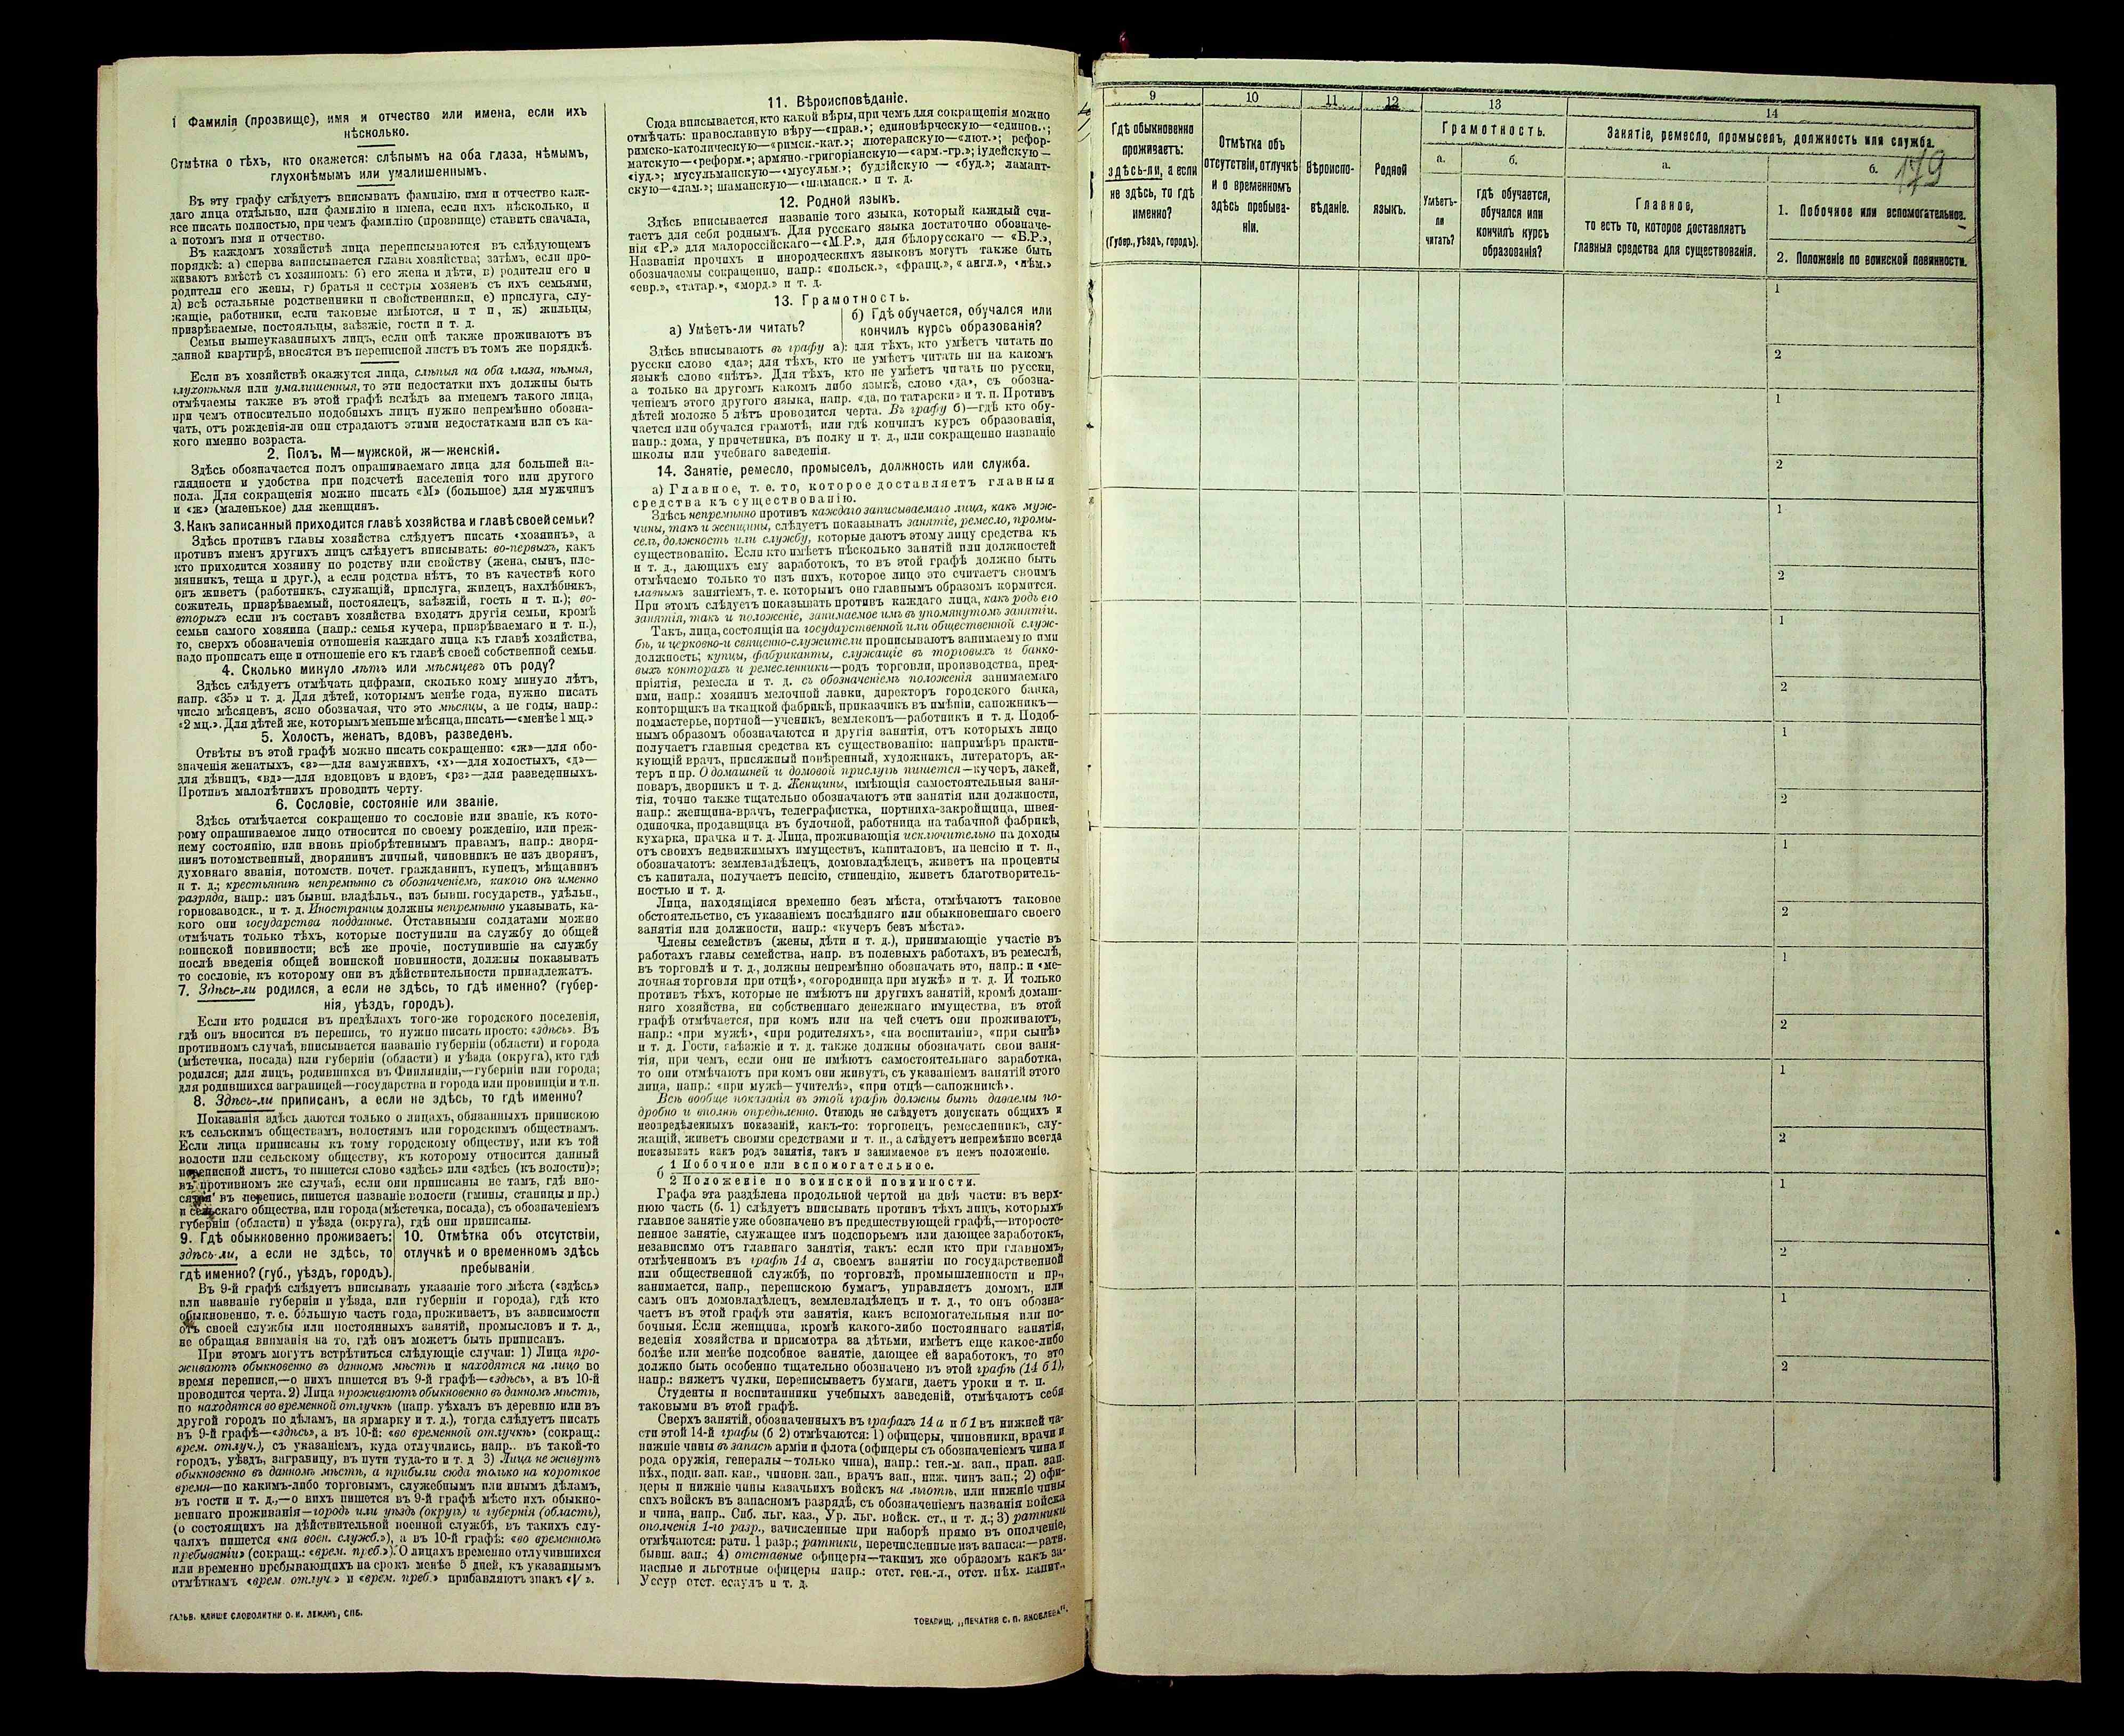 1 Фамилія (прозвище), имя и отчество или имена, если ихъ
нѣсколько.
Отмѣтка о тѣхъ, кто окажется: слѣпымъ на оба глаза, нѣмымъ,
глухонѣмымъ или умалишеннымъ.
Въ эту графу слѣдуетъ вписывать фамилію, имя и отчество каж-
даго лица отдѣльно, или фамилію и имена, если ихъ нѣсколько, и
все писать полностью, при чемъ фамилію (прозвище) ставить сначала,
а потомъ имя и отчество.
Въ каждомъ хозяйствѣ лица переписываются въ слѣдующемъ
порядкѣ: а) сперва записывается глава хозяйства; затѣмъ, если про-
живаютъ вмѣстѣ съ хозяиномъ: б) его жена и дѣти, в) родители его и
родители его жены, г) братья и сестры хозяевъ съ ихъ семьями,
д) всѣ остальные родственники и свойственники, е) прислуга, слу-
жащіе, работники, если таковые имѣются, и т п, ж) жильцы,
призрѣваемые, постояльцы, заѣзжіе, гости и т. д.
Семьи вышеуказанныхъ лицъ, если онѣ также проживаютъ въ
данной квартирѣ, вносятся въ переписной листъ въ томъ же порядкѣ.
Если въ хозяйствѣ окажутся лица, слѣпыя на оба глаза, нѣмыя,
глухонѣмыя или умалишенныя, то эти недостатки ихъ должны быть
отмѣчаемы также въ этой графѣ вслѣдъ за именемъ такого лица,
при чемъ относительно подобныхъ лицъ нужно непремѣнно обозна-
чать, отъ рожденія-ли они страдаютъ этими недостатками или съ ка-
кого именно возраста.
2. Полъ. М—мужской, ж—женскій.
Здѣсь обозначается полъ опрашиваемаго лица для большей на-
глядности и удобства при подсчетѣ населенія того или другого
пола. Для сокращенія можно писать «М» (большое) для мужчинъ
и «ж» (маленькое) для женщинъ.
3. Какъ записанный приходится главѣ хозяйства и главѣ своей семьи?
Здѣсь противъ главы хозяйства слѣдуетъ писать «хозяинъ», а
противъ именъ другихъ лицъ слѣдуетъ вписывать: во-первыхъ, какъ
кто приходится хозяину по родству или свойству (жена, сынъ, пле-
мянникъ, теща и друг.), а если родства нѣтъ, то въ качествѣ кого
онъ живетъ (работникъ, служащій, прислуга, жилецъ, нахлѣбникъ,
сожитель, призрѣваемый, постоялецъ, заѣзжій, гость и т. п.); во-
вторыхъ если въ составъ хозяйства входятъ другія семьи, кромѣ
семьи самого хозяина (напр.: семья кучера, призрѣваемаго и т. п.),
то, сверхъ обозначенія отношенія каждаго лица къ главѣ хозяйства,
надо прописать еще и отношеніе его къ главѣ своей собственной семьи.
4. Сколько минуло лѣтъ или мѣсяцевъ отъ роду?
Здѣсь слѣдуетъ отмѣчать цифрами, сколько кому минуло лѣтъ,
напр. «35» и т. д. Для дѣтей, которымъ менѣе года, нужно писать
число мѣсяцевъ, ясно обозначая, что это мѣсяцы, а не годы, напр.:
«2 мц.». Для дѣтей же, которымъ меньше мѣсяца, писать—«менѣе 1 мц.»
5. Холостъ, женатъ, вдовъ, разведенъ.
Отвѣты въ этой графѣ можно писать сокращенно: «ж»—для обо-
значенія женатыхъ, «з»—для замужнихъ, «х»—для холостыхъ, «д»—
для дѣвицъ, «вд»—для вдовцовъ и вдовъ, «рз»—для разведенныхъ.
Противъ малолѣтнихъ проводить черту.
6. Сословіе, состояніе или званіе.
Здѣсь отмѣчается сокращенно то сословіе или званіе, къ кото-
рому опрашиваемое лицо относится по своему рожденію, или преж-
нему состоянію, или вновь пріобрѣтеннымъ правамъ, напр.: дворя-
нинъ потомственный, дворянинъ личный, чиновникъ не изъ дворянъ,
духовнаго званія, потомств. почет. гражданинъ, купецъ, мѣщанинъ
и т. д.; крестьянинъ непремѣнно съ обозначеніемъ, какого онъ именно
разряда, напр.: изъ бывш. владѣльч., изъ бывш. государств., удѣльн.,
горнозаводск., и т. д. Иностранцы должны непремѣнно указывать, ка-
кого они государства подданные. Отставными солдатами можно
отмѣчать только тѣхъ, которые поступили на службу до общей
воинской повинности; всѣ же прочіе, поступившіе на службу
послѣ введенія общей воинской повинности, должны показывать
то сословіе, къ которому они въ дѣйствительности принадлежатъ.
7. Здѣсь-ли родился, а если не здѣсь, то гдѣ именно? (губер-
нія, уѣздъ, городъ).
Если кто родился въ предѣлахъ того-же городского поселенія,
гдѣ онъ вносится въ перепись, то нужно писать просто: «здѣсь». Въ
противномъ случаѣ, вписывается названіе губерніи (области) и города
(мѣстечка, посада) или губерніи (области) и уѣзда (округа), кто гдѣ
родился; для лицъ, родившихся въ Финляндіи,—губерніи или города;
для родившихся заграницей—государства и города или провинціи и т.п.
8. Здѣсь-ли приписанъ, а если не здѣсь, то гдѣ именно?
Показанія здѣсь даются только о лицахъ, обязанныхъ припискою
къ сельскимъ обществамъ, волостямъ или городскимъ обществамъ.
Если лица приписаны къ тому городскому обществу, или къ той
волости или сельскому обществу, къ которому относится данный
переписной листъ, то пишется слово «здѣсь» или «здѣсь (къ волости)»;
въ противномъ же случаѣ, если они приписаны не тамъ, гдѣ вно-
сятся въ перепись, пишется названіе волости (гмины, станицы и пр.)
и сельскаго общества, или города (мѣстечка, посада), съ обозначеніемъ
губерніи (области) и уѣзда (округа), гдѣ они приписаны.
9. Гдѣ обыкновенно проживаетъ:
здѣсь-ли, а если не здѣсь, то
гдѣ именно? (губ., уѣздъ, городъ).
10. Отмѣтка объ отсутствіи,
отлучкѣ и о временномъ здѣсь
пребываніи.
Въ 9-й графѣ слѣдуетъ вписывать указаніе того мѣста («здѣсь»
или названіе губерніи и уѣзда, или губерніи и города), гдѣ кто
обыкновенно, т. е. бо́льшую часть года, проживаетъ, въ зависимости
отъ своей службы или постоянныхъ занятій, промысловъ и т. д.,
не обращая вниманія на то, гдѣ онъ можетъ быть приписанъ.
При этомъ могутъ встрѣтиться слѣдующіе случаи: 1) Лица про-
живаютъ обыкновенно въ данномъ мѣстѣ и находятся на лицо во
время переписи,—о нихъ пишется въ 9-й графѣ—«здѣсь», а въ 10-й
проводится черта. 2) Лица проживаютъ обыкновенно въ данномъ мѣстѣ,
но находятся во временной отлучкѣ (напр. уѣхалъ въ деревню или въ
другой городъ по дѣламъ, на ярмарку и т. д.), тогда слѣдуетъ писать
въ 9-й графѣ—«здѣсь», а въ 10-й: «во временной отлучкѣ» (сокращ.:
врем. отлуч.), съ указаніемъ, куда отлучились, напр.. въ такой-то
городъ, уѣздъ, заграницу, въ пути туда-то и т. д 3) Лица не живутъ
обыкновенно въ данномъ мѣстѣ, а прибыли сюда только на короткое
время—по какимъ-либо торговымъ, служебнымъ или инымъ дѣламъ,
въ гости и т. д.,—о нихъ пишется въ 9-й графѣ мѣсто ихъ обыкно-
веннаго проживанія—городъ или уѣздъ (округъ) и губернія (область),
(о состоящихъ на дѣйствительной военной службѣ, въ такихъ слу-
чаяхъ пишется «на воен. служб.»), а въ 10-й графѣ: «во временномъ
пребываніи» (сокращ.: «врем. преб.»). О лицахъ временно отлучившихся
или временно пребывающихъ на срокъ менѣе 5 дней, къ указаннымъ
отмѣткамъ «врем. отлуч.» и «врем. преб.» прибавляютъ знакъ «V».
ГАЛЬВ. КЛИШЕ СЛОВОЛИТНИ О. И. ЛЕМАНЪ, СПБ.
11. Вѣроисповѣданіе.
Сюда вписывается, кто какой вѣры, при чемъ для сокращенія можно
отмѣчать: православную вѣру—«прав.»; единовѣрческую—«единов.»;
римско-католическую—«римск.-кат.»; лютеранскую—«лют.»; рефор-
матскую—«реформ.»; армяно-григоріанскую—«арм.-гр.»; іудейскую—
«іуд.»; мусульманскую—«мусульм.»; буддійскую — «буд.»; ламаит-
скую—«лам.»; шаманскую—«шаманск.» и т. д.
12. Родной языкъ.
Здѣсь вписывается названіе того языка, который каждый счи-
таетъ для себя роднымъ. Для русскаго языка достаточно обозначе-
нія «Р.» для малороссійскаго—«М.Р.», для бѣлорусскаго — «Б.Р.»,
Названія прочихъ и инородческихъ языковъ могутъ также быть
обозначаемы сокращенно, напр.: «польск.», «франц.», «англ.», «нѣм.»
«евр.», «татар.», «морд.» и т. д.
13. Грамотность.
а) Умѣетъ-ли читать?
б) Гдѣ обучается, обучался или
кончилъ курсъ образованія?
Здѣсь вписываютъ въ графу а): для тѣхъ, кто умѣетъ читать по
русски слово «да»; для тѣхъ, кто не умѣетъ читать ни на какомъ
языкѣ слово «нѣтъ». Для тѣхъ, кто не умѣетъ читать по русски,
а только на другомъ какомъ либо языкѣ, слово «да», съ обозна-
ченіемъ этого другого языка, напр. «да, по татарски» и т. п. Противъ
дѣтей моложе 5 лѣтъ проводится черта. Въ графу б)—гдѣ кто обу-
чается или обучался грамотѣ, или гдѣ кончилъ курсъ образованія,
напр.: дома, у причетника, въ полку и т. д., или сокращенно названіе
школы или учебнаго заведенія.
14. Занятіе, ремесло, промыселъ, должность или служба.
а) Главное, т. е. то, которое доставляетъ главныя
средства къ существованію.
Здѣсь непремѣнно противъ каждаго записываемаго лица, какъ муж-
чины, такъ и женщины, слѣдуетъ показывать занятіе, ремесло, промы-
селъ, должность или службу, которые даютъ этому лицу средства къ
существованію. Если кто имѣетъ нѣсколько занятій или должностей
и т. д., дающихъ ему заработокъ, то въ этой графѣ должно быть
отмѣчаемо только то изъ нихъ, которое лицо это считаетъ своимъ
главнымъ занятіемъ, т. е. которымъ оно главнымъ образомъ кормится.
При этомъ слѣдуетъ показывать противъ каждаго лица, какъ родъ его
занятія, такъ и положеніе, занимаемое имъ въ упомянутомъ занятіи.
Такъ, лица, состоящія на государственной или общественной служ-
бѣ, и церковно-и священно-служители прописываютъ занимаемую ими
должность; купцы, фабриканты, служащіе въ торговыхъ и банко-
выхъ конторахъ и ремесленники—родъ торговли, производства, пред-
пріятія, ремесла и т. д. съ обозначеніемъ положенія занимаемаго
ими, напр.: хозяинъ мелочной лавки, директоръ городского банка,
конторщикъ на ткацкой фабрикѣ, приказчикъ въ имѣніи, сапожникъ—
подмастерье, портной—ученикъ, землекопъ—работникъ и т. д. Подоб-
нымъ образомъ обозначаются и другія занятія, отъ которыхъ лицо
получаетъ главныя средства къ существованію: напримѣръ практи-
кующій врачъ, присяжный повѣренный, художникъ, литераторъ, ак-
теръ и пр. О домашней и домовой прислугѣ пишется—кучеръ, лакей,
поваръ, дворникъ и т. д. Женщины, имѣющія самостоятельныя заня-
тія, точно также тщательно обозначаютъ эти занятія или должности,
напр.: женщина-врачъ, телеграфистка, портниха-закройщица, швея-
одиночка, продавщица въ булочной, работница на табачной фабрикѣ,
кухарка, прачка и т. д. Лица, проживающія исключительно на доходы
отъ своихъ недвижимыхъ имуществъ, капиталовъ, на пенсію и т. п.,
обозначаютъ: землевладѣлецъ, домовладѣлецъ, живетъ на проценты
съ капитала, получаетъ пенсію, стипендію, живетъ благотворитель-
ностью и т. д.
Лица, находящіяся временно безъ мѣста, отмѣчаютъ таковое
обстоятельство, съ указаніемъ послѣдняго или обыкновеннаго своего
занятія или должности, напр.: «кучеръ безъ мѣста».
Члены семействъ (жены, дѣти и т. д.), принимающіе участіе въ
работахъ главы семейства, напр. въ полевыхъ работахъ, въ ремеслѣ,
въ торговлѣ и т. д., должны непремѣнно обозначать это, напр.: и «ме-
лочная торговля при отцѣ», «огородница при мужѣ» и т. д. И только
противъ тѣхъ, которые не имѣютъ ни другихъ занятій, кромѣ домаш-
няго хозяйства, ни собственнаго денежнаго имущества, въ этой
графѣ отмѣчается, при комъ или на чей счетъ они проживаютъ,
напр.: «при мужѣ», «при родителяхъ», «на воспитаніи», «при сынѣ»
и т. д. Гости, заѣзжіе и т. д. также должны обозначать свои заня-
тія, при чемъ, если они не имѣютъ самостоятельнаго заработка,
то они отмѣчаютъ при комъ они живутъ, съ указаніемъ занятій этого
лица, напр.: «при мужѣ—учителѣ», «при отцѣ—сапожникѣ».
Всѣ вообще показанія въ этой графѣ должны быть даваемы по-
дробно и вполнѣ опредѣленно. Отнюдь не слѣдуетъ допускать общихъ и
неопредѣленныхъ показаній, какъ-то: торговецъ, ремесленникъ, слу-
жащій, живетъ своими средствами и т. п., а слѣдуетъ непремѣнно всегда
показывать какъ родъ занятія, такъ и занимаемое въ немъ положеніе.
1 Побочное или вспомогательное.
б
2 Положеніе по воинской повинности.
Графа эта раздѣлена продольной чертой на двѣ части: въ верх-
нюю часть (б. 1) слѣдуетъ вписывать противъ тѣхъ лицъ, которыхъ
главное занятіе уже обозначено въ предшествующей графѣ,—второсте-
пенное занятіе, служащее имъ подспорьемъ или дающее заработокъ,
независимо отъ главнаго занятія, такъ: если кто при главномъ,
отмѣченномъ въ графѣ 14 а, своемъ занятіи по государственной
или общественной службѣ, по торговлѣ, промышленности и пр.,
занимается, напр., перепискою бумагъ, управляетъ домомъ, или
самъ онъ домовладѣлецъ, землевладѣлецъ и т. д., то онъ обозна-
чаетъ въ этой графѣ эти занятія, какъ вспомогательныя или по-
бочныя. Если женщина, кромѣ какого-либо постояннаго занятія,
веденія хозяйства и присмотра за дѣтьми, имѣетъ еще какое-либо
болѣе или менѣе подсобное занятіе, дающее ей заработокъ, то это
должно быть особенно тщательно обозначено въ этой графѣ (14 б 1),
напр.: вяжетъ чулки, переписываетъ бумаги, даетъ уроки и т. п.
Студенты и воспитанники учебныхъ заведеній, отмѣчаютъ себя
таковыми въ этой графѣ.
Сверхъ занятій, обозначенныхъ въ графахъ 14 а и б 1 въ нижней ча-
сти этой 14-й графы (б 2) отмѣчаются: 1) офицеры, чиновники, врачи и
нижніе чины въ запасѣ арміи и флота (офицеры съ обозначеніемъ чина и
рода оружія, генералы—только чина), напр.: ген.-м. зап., прап. зап.
пѣх., подп. зап. кав., чиновн. зап., врачъ зап., ниж. чинъ зап.; 2) офи-
церы и нижніе чины казачьихъ войскъ на льготѣ, или нижніе чины
сихъ войскъ въ запасномъ разрядѣ, съ обозначеніемъ названія войска
и чина, напр.. Сиб. льг. каз., Ур. льг. войск. ст., и т. д.; 3) ратники
ополченія 1-го разр., зачисленные при наборѣ прямо въ ополченіе,
отмѣчаются: ратн. 1 разр.; ратники, перечисленные изъ запаса:—ратн.
бывш. зап.; 4) отставные офицеры—такимъ же образомъ какъ за-
пасные и льготные офицеры напр.: отст. ген.-л., отст. пѣх. капит.,
Уссур отст. есаулъ и т. д.
ТОВАРИЩ. „ПЕЧАТНЯ С. П. ЯКОВЛЕВА".
9
10
11
12
13
14
Гдѣ обыкновенно
проживаетъ:
здѣсь-ли, а если
не здѣсь, то гдѣ
именно?
(Губер., уѣздъ, городъ).
Отмѣтка объ
отсутствіи, отлучкѣ
и о временномъ
здѣсь пребыва-
ніи.
Вѣроиспо-
вѣданіе.
Родной
языкъ.
Грамотность.
а.
Умѣетъ-
ли
читать?
б.
Гдѣ обучается,
обучался или
кончилъ курсъ
образованія?
Занятіе, ремесло, промыселъ, должность или служба.
а.
Главное,
то есть то, которое доставляетъ
главныя средства для существованія.
б.
179
1. Побочное или вспомогательное.
2. Положеніе по воинской повинности.
1
2
1
2
1
2
1
2
1
2
1
2
1
2
1
2
1
2
1
2